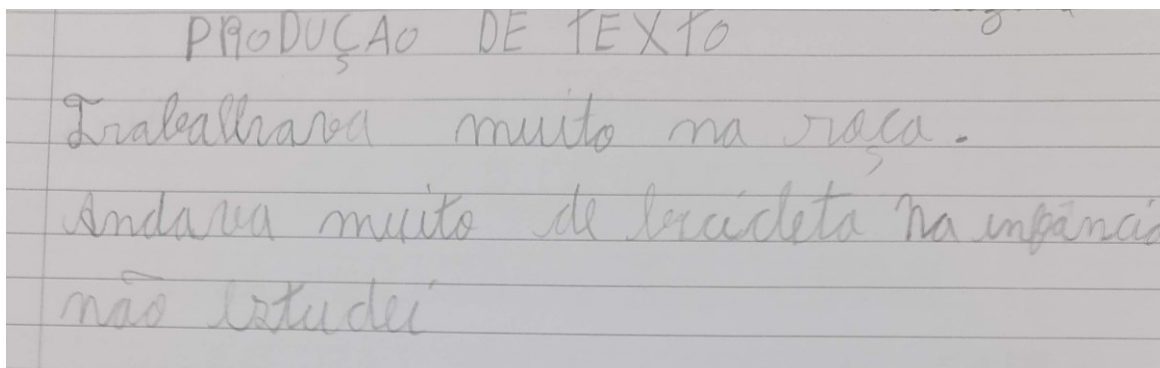 PRODUÇAO DE TEXTO
Trabalhava muito na roça.
Andava muito de bicicleta na infância
não estudei